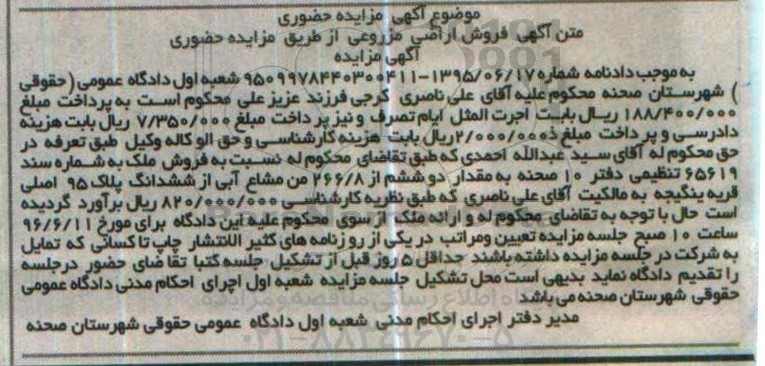 موضوع آگهی مزایده حضوری
متن آگهی فروش اراضی مزروعی از طریق مزایده حضوری
آگهی مزایده
به موجب دادنامه شماره ۱۳۹۵/۰۶/۱۷-۹۵۰۹۹۷۸۴۴۰۳۰۰۴۱۱ شعبه اول دادگاه عمومی (حقوقی
) شهرستان صحنه محکوم علیه آقای علی ناصری کرجی فرزند عزیز علی محکوم است به پرداخت مبلغ
۱۸۸/۴۰۰/۰۰۰ ریال بابت اجرت المثل ایام تصرف و نیز پرداخت مبلغ ۷/۳۵۰/۰۰۰ ریال بابت هزینه
دادرسی و پرداخت مبلغ ۲/۰۰۰/۰۰۰ ریال بابت هزینه کارشناسی و حق الوکاله وکیل طبق تعرفه در
حق محکوم له آقای سید عبدالله احمدی که طبق تقاضای محکوم له نسبت به فروش ملک به شماره سند
۶۵۶۱۹ تنظیمی دفتر ۱۰ صحنه به مقدار دو ششم از ۲۶۶/۸ من مشاع آبی از ششدانگ پلاک ۹۵ اصلی
قریه ینگیجه به مالکیت آقای علی ناصری که طبق نظریه کارشناسی ۸۲۰/۰۰۰/۰۰۰ ریال برآورد گردیده
است حال با توجه به تقاضای محکوم له و ارائه ملک از سوی محکوم علیه این دادگاه برای مورخ ۹۶/۶/۱۱
ساعت ۱۰ صبح جلسه مزایده تعیین ومراتب در یکی از روزنامه های کثیر الانتشار چاپ تا کسانی که تمایل
به شرکت در جلسه مزایده داشته باشند حداقل ۵ روز قبل از تشکیل جلسه کتبا تقاضای حضور درجلسه
را تقدیم دادگاه نماید بدیهی است محل تشکیل جلسه مزایده شعبه اول اجرای احکام مدنی دادگاه عمومی
حقوقی شهرستان صحنه می باشد
مدیر دفتر اجرای احکام مدنی شعبه اول دادگاه عمومی حقوقی شهرستان صحنه
۰۲۱-۸۸۳۴۹۶۷۰-۵